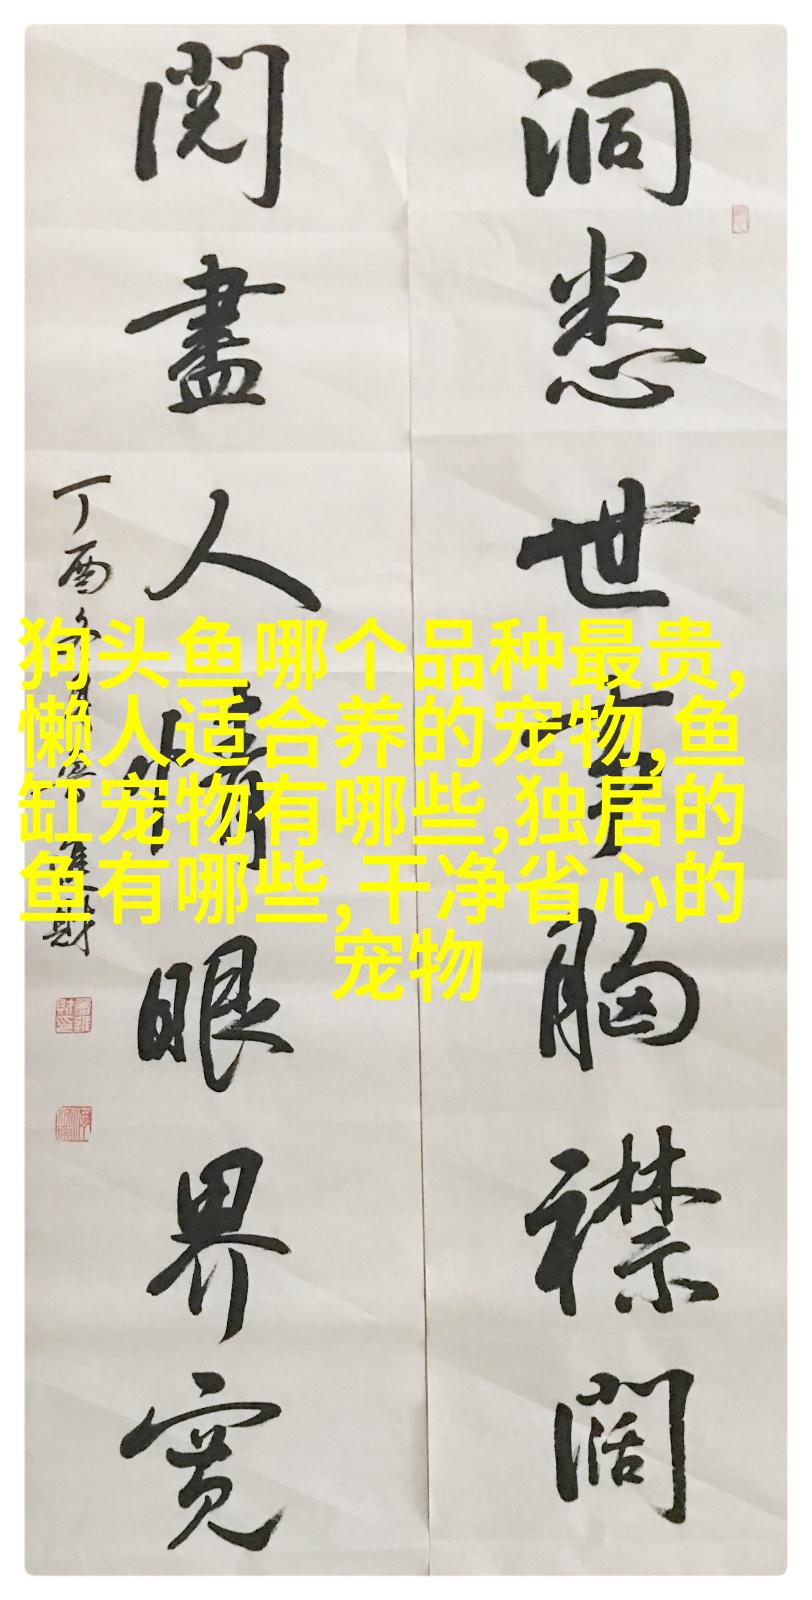 洞悉世事胸襟闊
閱盡人情眼界寬
丁酉
狗头鱼哪个品种最贵,
懒人适合养的宠物,鱼
缸宠物有哪些,独居的
鱼有哪些,干净省心的
宠物